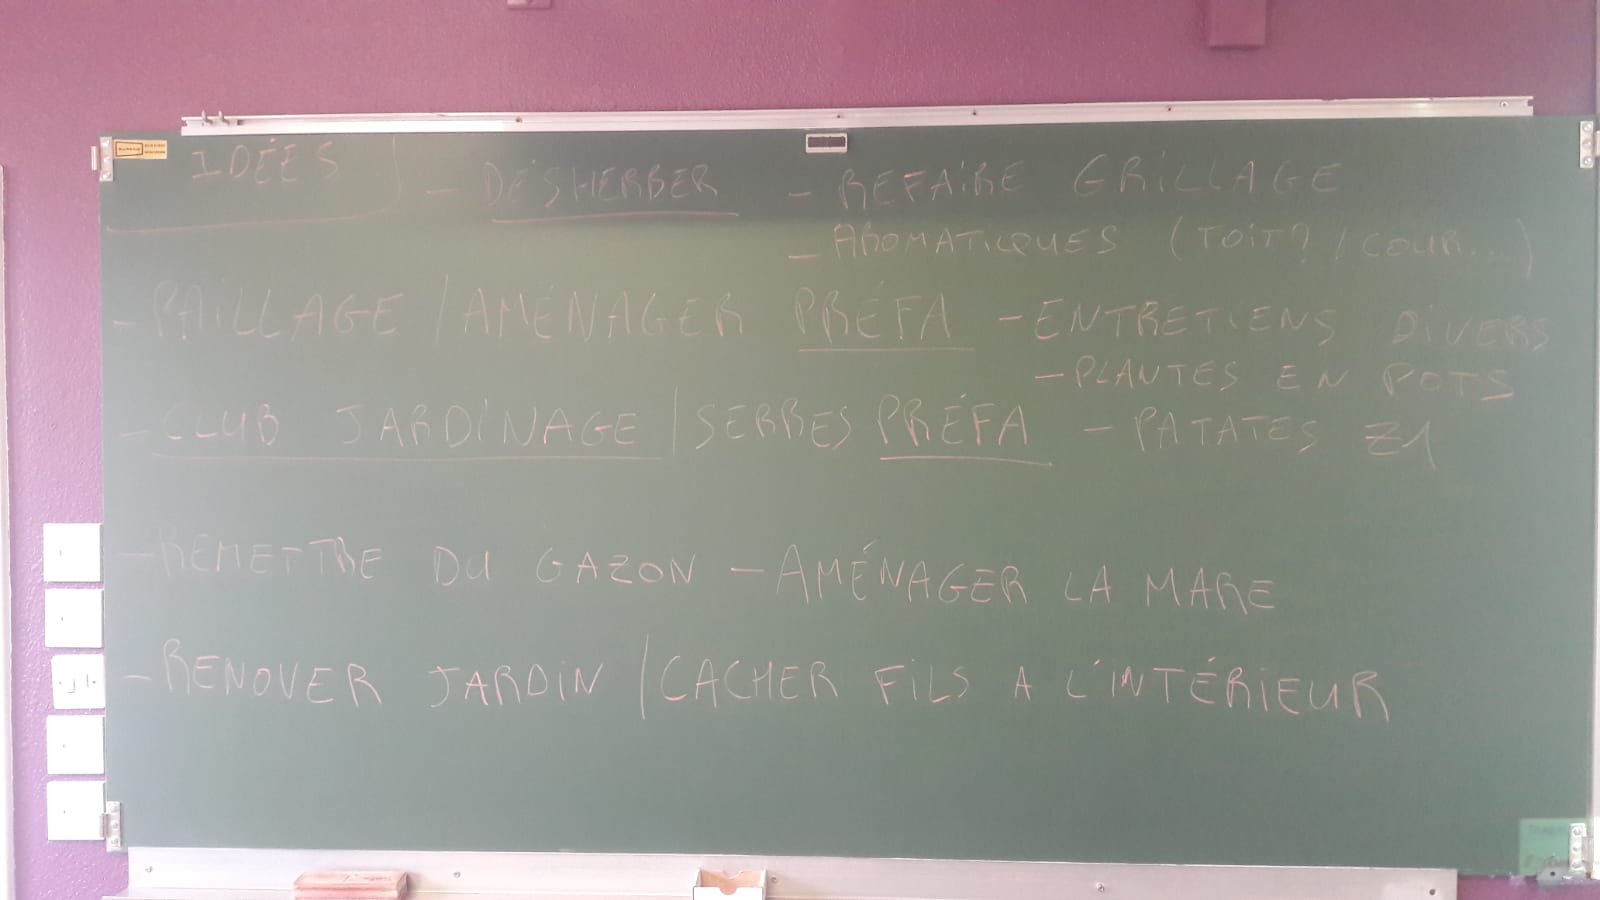 IDÉES
- DÉSHERBER - REFAIRE GRILLAGE
- AROMATICQUES (TOIT? / COUR...)
- PAILLAGE / AMÉNAGER PRÉFA - ENTRETIENS DIVERS
- PLANTES EN POTS
- CLUB JARDINAGE / SERRES PRÉFA - PATATES Z1
- REMETTRE DU GAZON - AMÉNAGER LA MARE
- RENOVER JARDIN / CACHER FILS A L'INTÉRIEUR